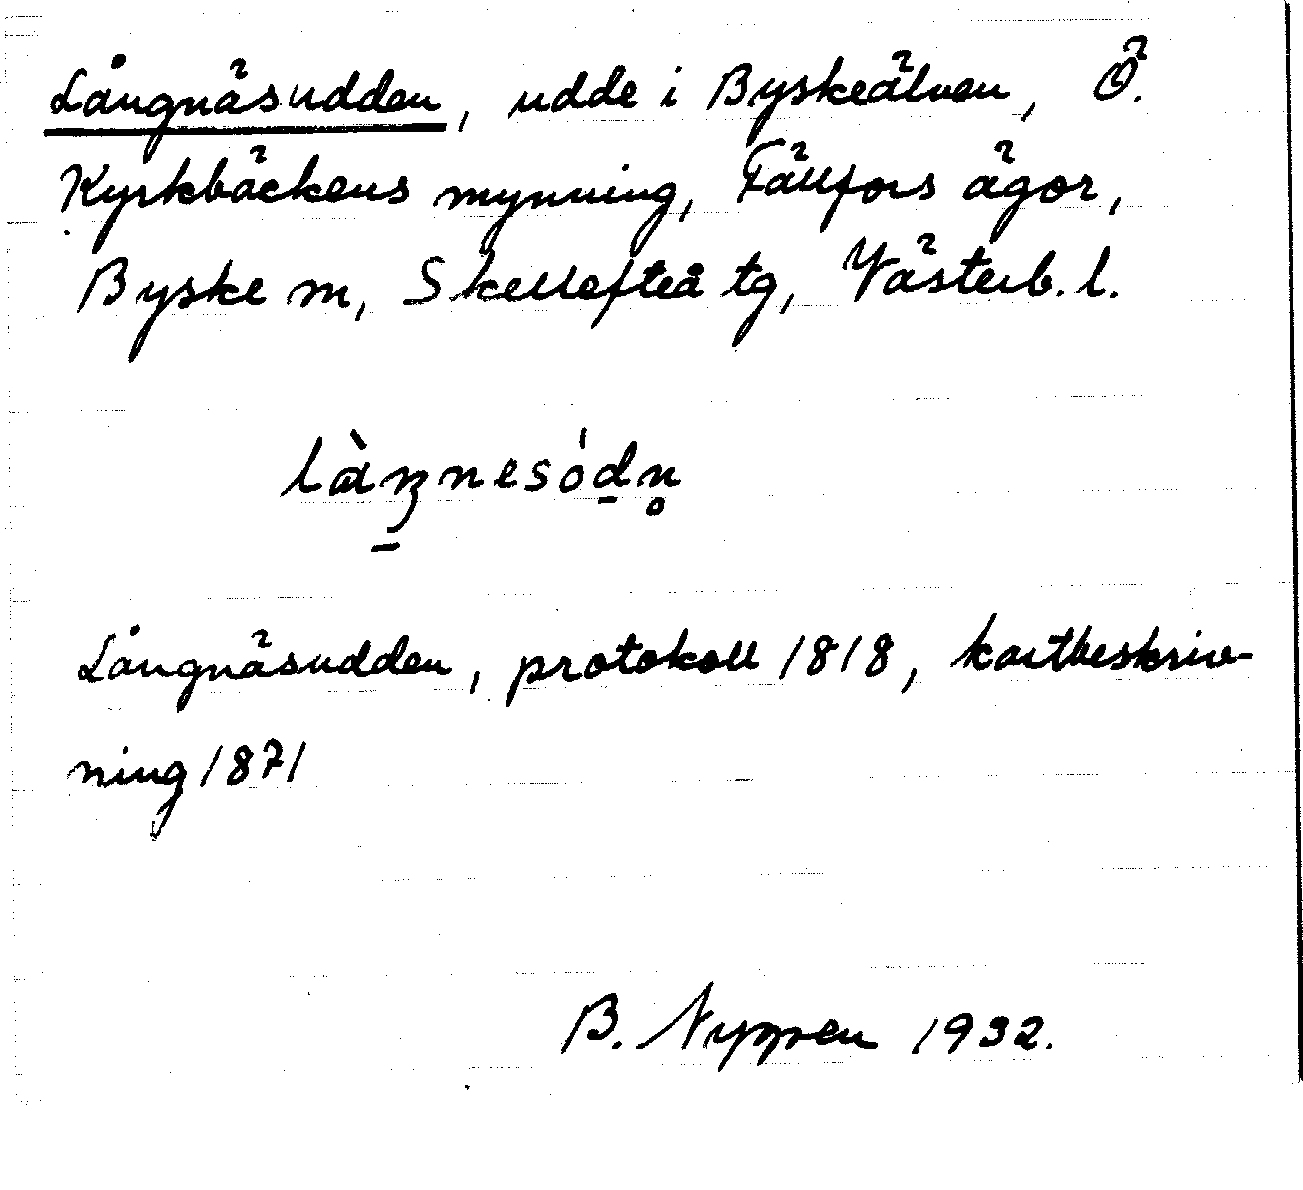 Långnäsudden, udde i Byskeälven, Ö.
Kyrkbäckens mynning, Fällfors ägor,
Byske m, Skellefteå tg, Västerb. l.
Långnäsudden, protokoll 1818, kartbeskriv-
ning 1871
B. Nygren 1932.